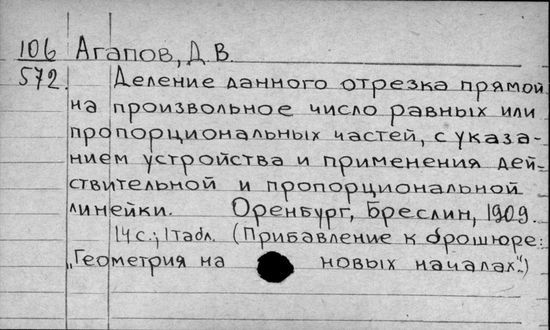 106 Агапов, Д. В.
572. Деление данного отрезка прямой
на произвольное число равных или
пропорциональных частей, с указа-
нием устройства и применения дей-
ствительной и пропорциональной
линейки. Оренбург, Бреслин, 1909.
14 с.; 1 табл. (Прибавление к брошюре:
„Геометрия на новых началах“.)